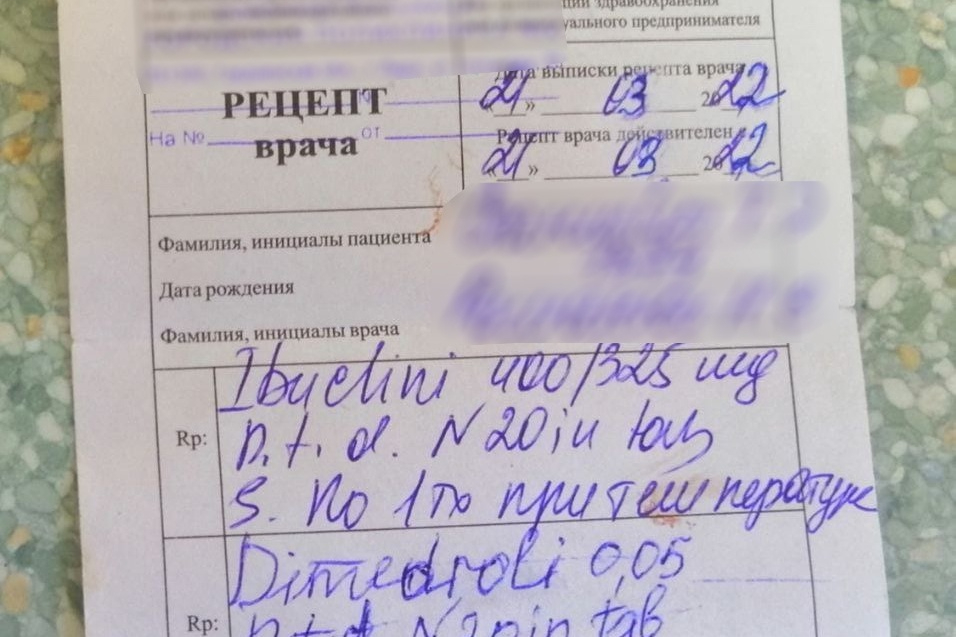 ции здравоохранения
уального предпринимателя
РЕЦЕПТ
врача
На № от
Дата выписки рецепта врача
21 » 03 2022
Рецепт врача действителен
21 » 03 2022
Фамилия, инициалы пациента
Дата рождения
Фамилия, инициалы врача
Rp:
Ibuclini 400/325 mg
D. t. d. N 20 in
S. По 1 тб при температуре
Rp:
Dimedroli 0,05
D. t. d. N 20 in tab